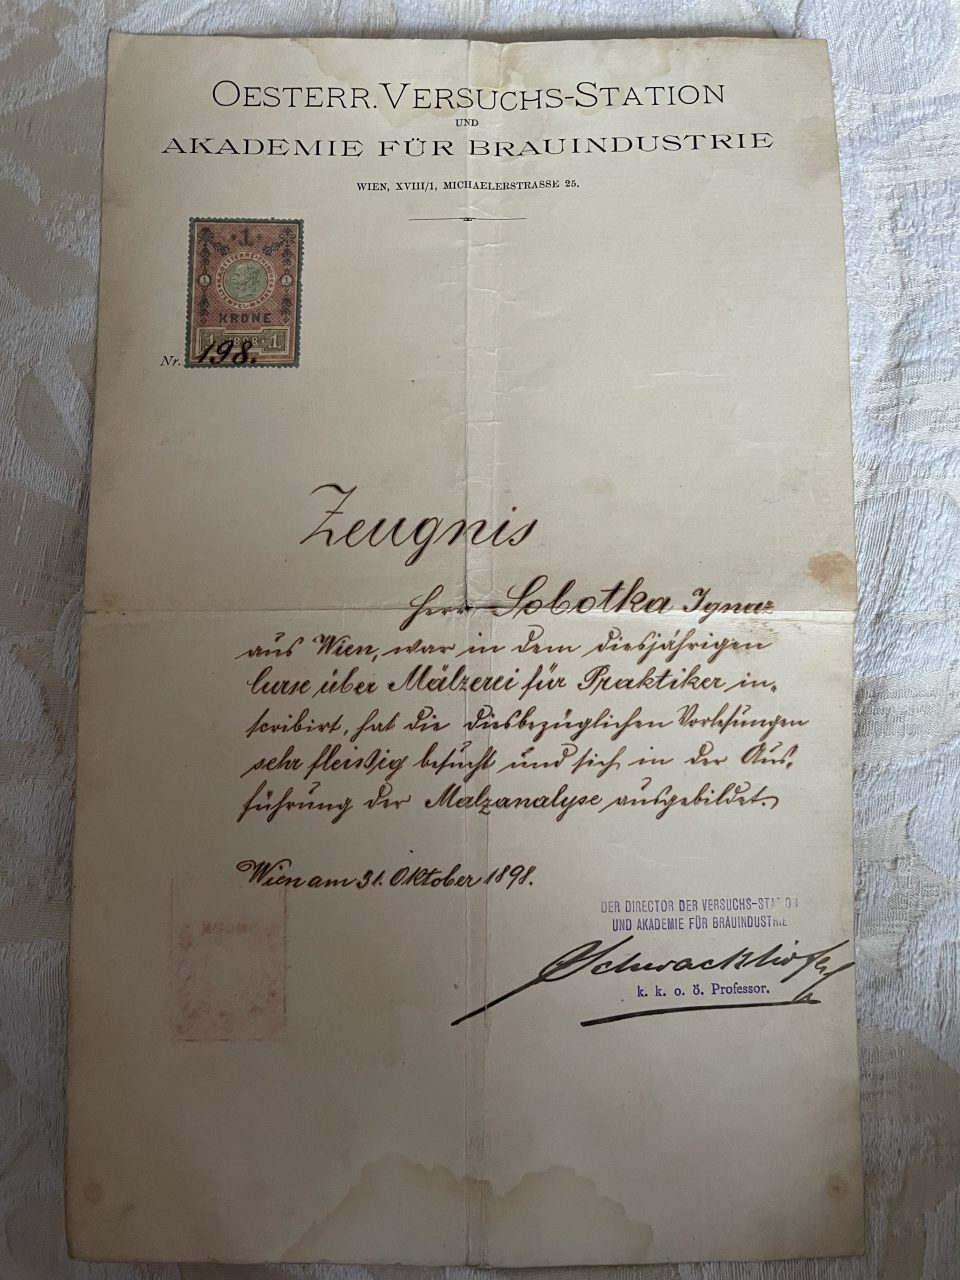 OESTERR. VERSUCHS-STATION
UND
AKADEMIE FÜR BRAUINDUSTRIE
WIEN, XVIII/1, MICHAELERSTRASSE 25.
1
1 1
KRONE
1 1898 1
Nr. 198.
Zeugnis
Herr Sobotka Ignaz
aus Wien, war in dem diesjährigen
Curse über Mälzerei für Praktiker in-
scribirt, hat die diesbezüglichen Vorlesungen
sehr fleissig besucht und sich in der Aus-
führung der Malzanalyse ausgebildet.
Wien am 31. Oktober 1898.
DER DIRECTOR DER VERSUCHS-STATION
UND AKADEMIE FÜR BRAUINDUSTRIE
Schwackhöfer
k. k. o. ö. Professor.